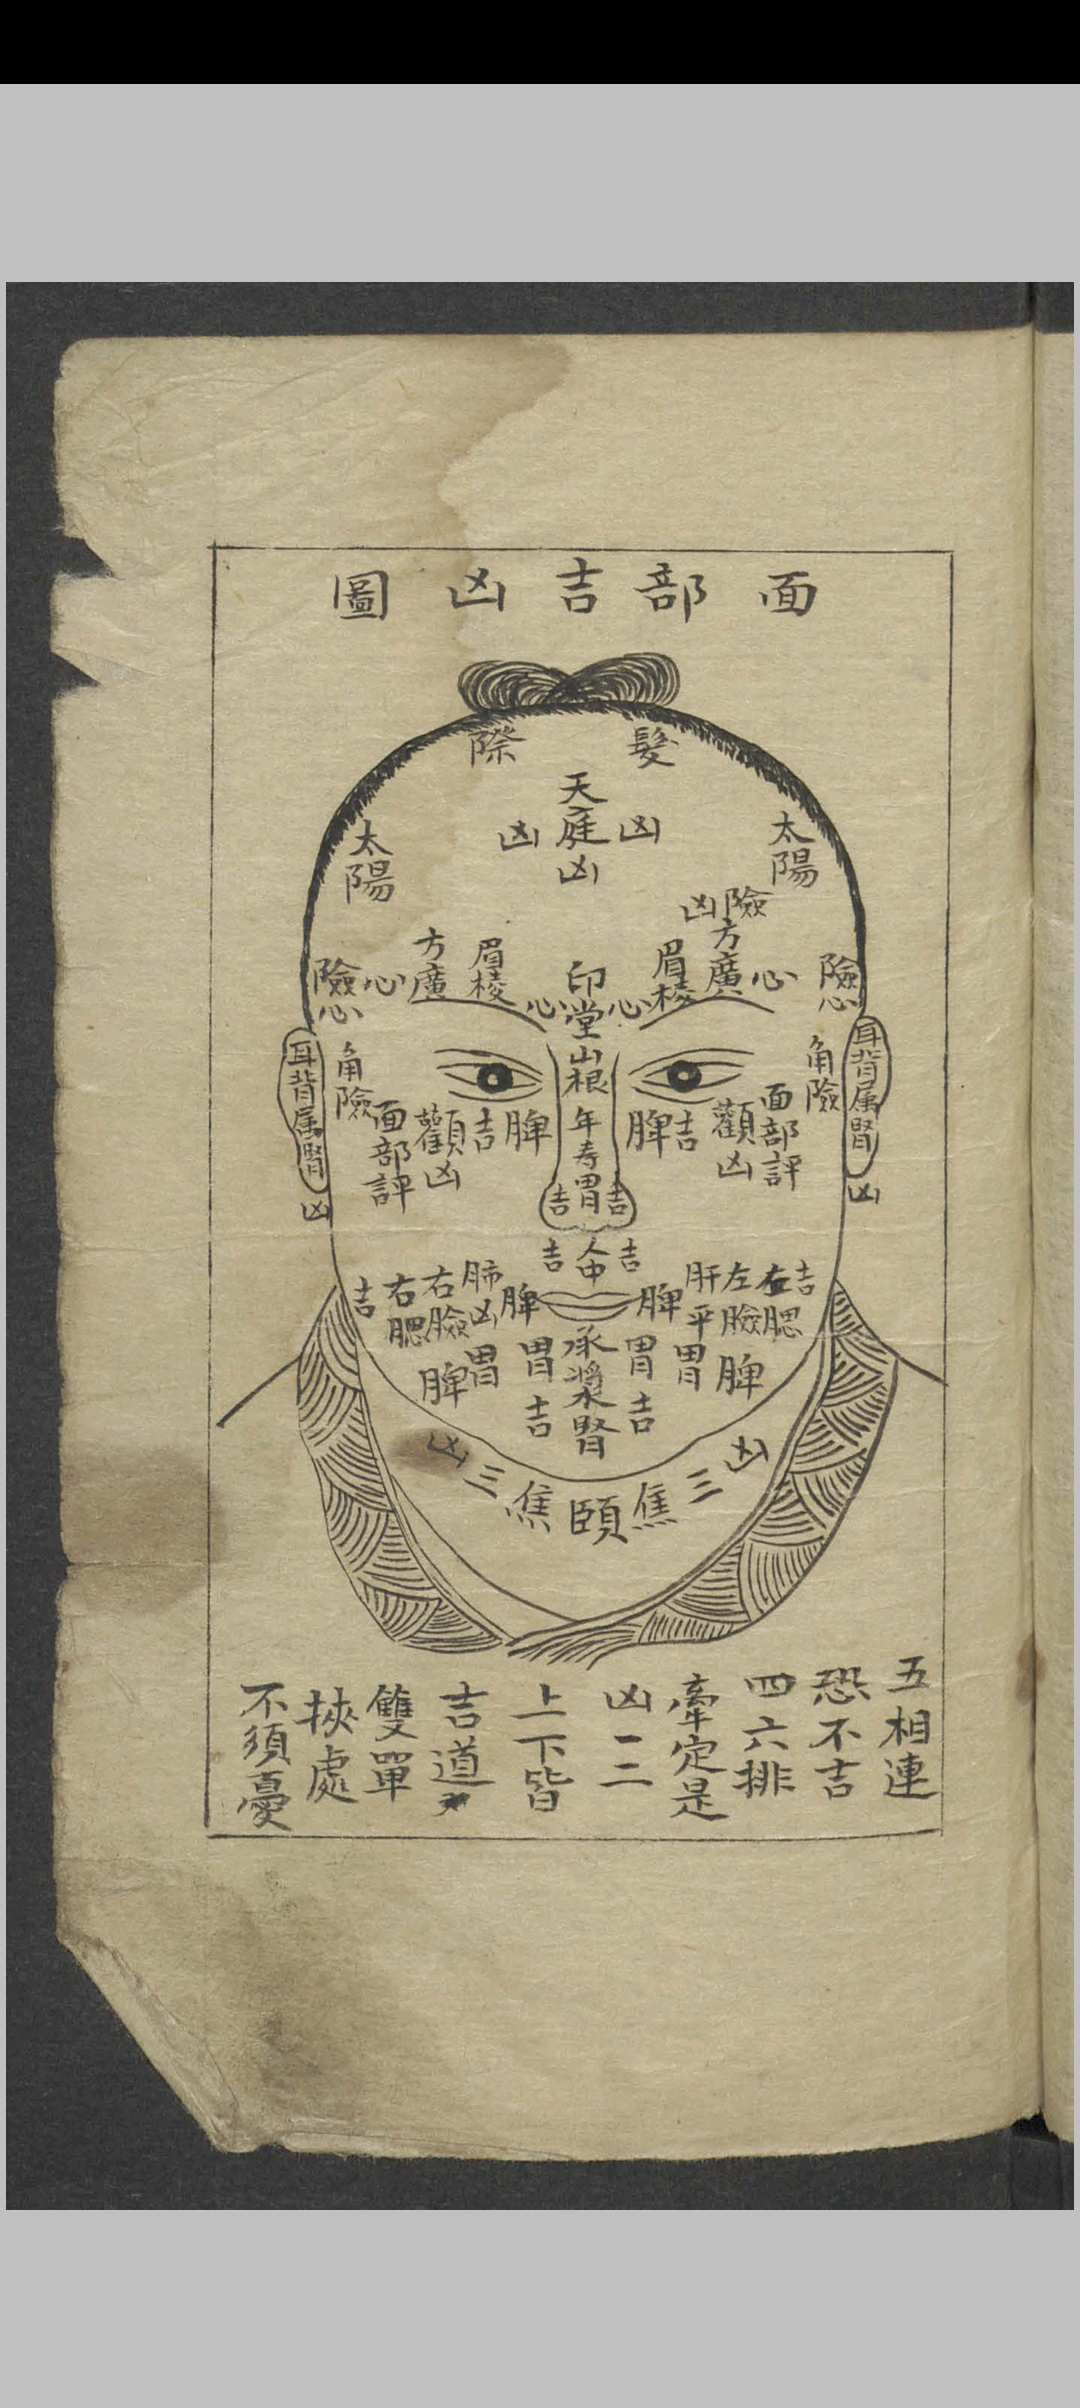 面部吉凶圖
髮際
天庭
凶
凶
凶
太陽
太陽
險
凶
方廣
心
眉棱
險心
印堂
心
心
眉棱
方廣
心
險心
山根
年壽
胃
吉
吉
耳背属腎
凶
角險
面部評
顴凶
吉
脾
脾
吉
顴凶
面部評
角險
耳背属腎
凶
吉
人中
吉
吉
左腮
左臉
肝平
胃
脾
脾
胃
吉
承漿
腎
脾
胃
吉
肺凶
胃
右臉
脾
右腮
吉
凶
三
焦
頤
焦
三
凶
五相連
恐不吉
四六排
牽定是
凶一二
上下皆
吉道
雙單
挾處
不須憂